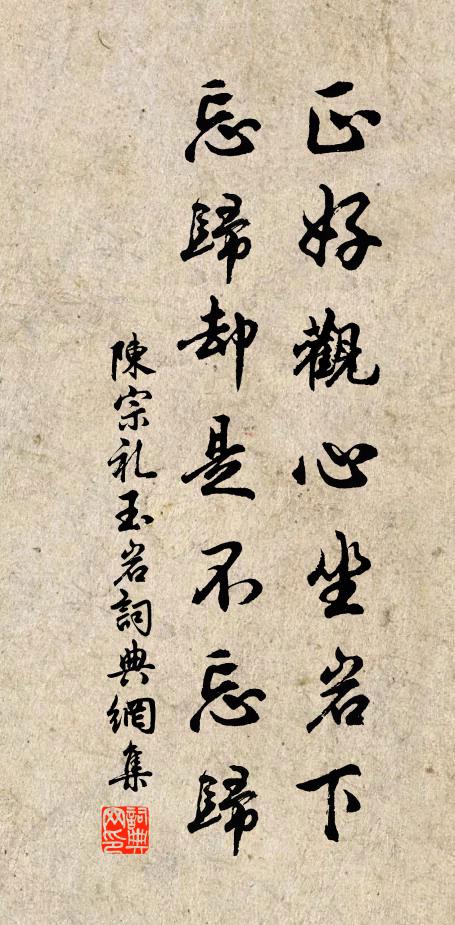 正好觀心坐岩下
忘歸却是不忘歸
陳宗礼玉岩詞典網集
詞典网印